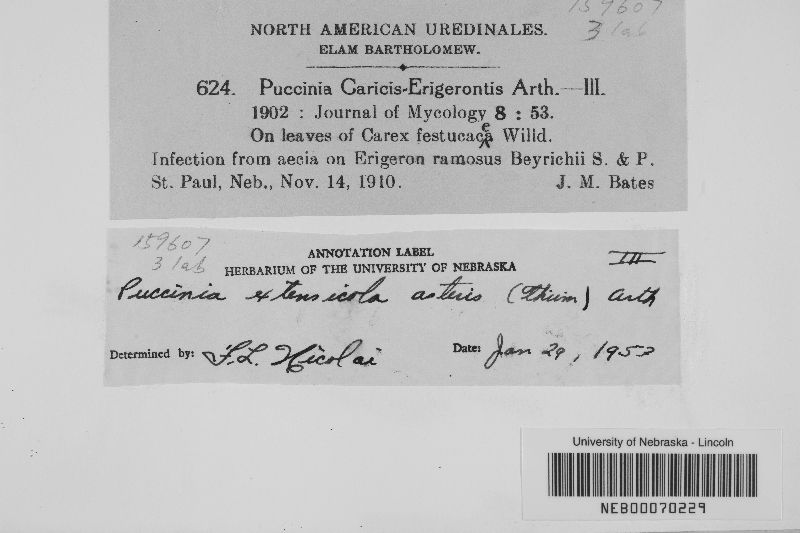 159607
3 lab
NORTH AMERICAN UREDINALES.
ELAM BARTHOLOMEW.
624. Puccinia Caricis-Erigerontis Arth.—III.
1902 : Journal of Mycology 8 : 53.
On leaves of Carex festucacea Willd.
Infection from aecia on Erigeron ramosus Beyrichii S. & P.
St. Paul, Neb., Nov. 14, 1910. J. M. Bates
159607
3 lab
ANNOTATION LABEL
HERBARIUM OF THE UNIVERSITY OF NEBRASKA
III
Puccinia extensicola asteris (Thüm) Arth
Determined by: F.L. Nicolai Date: Jan 29, 1953
University of Nebraska - Lincoln
NEB00070229